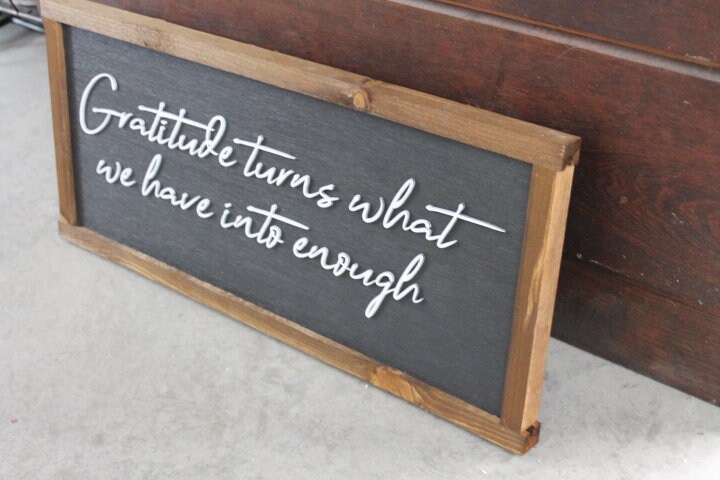 Gratitude turns what
we have into enough